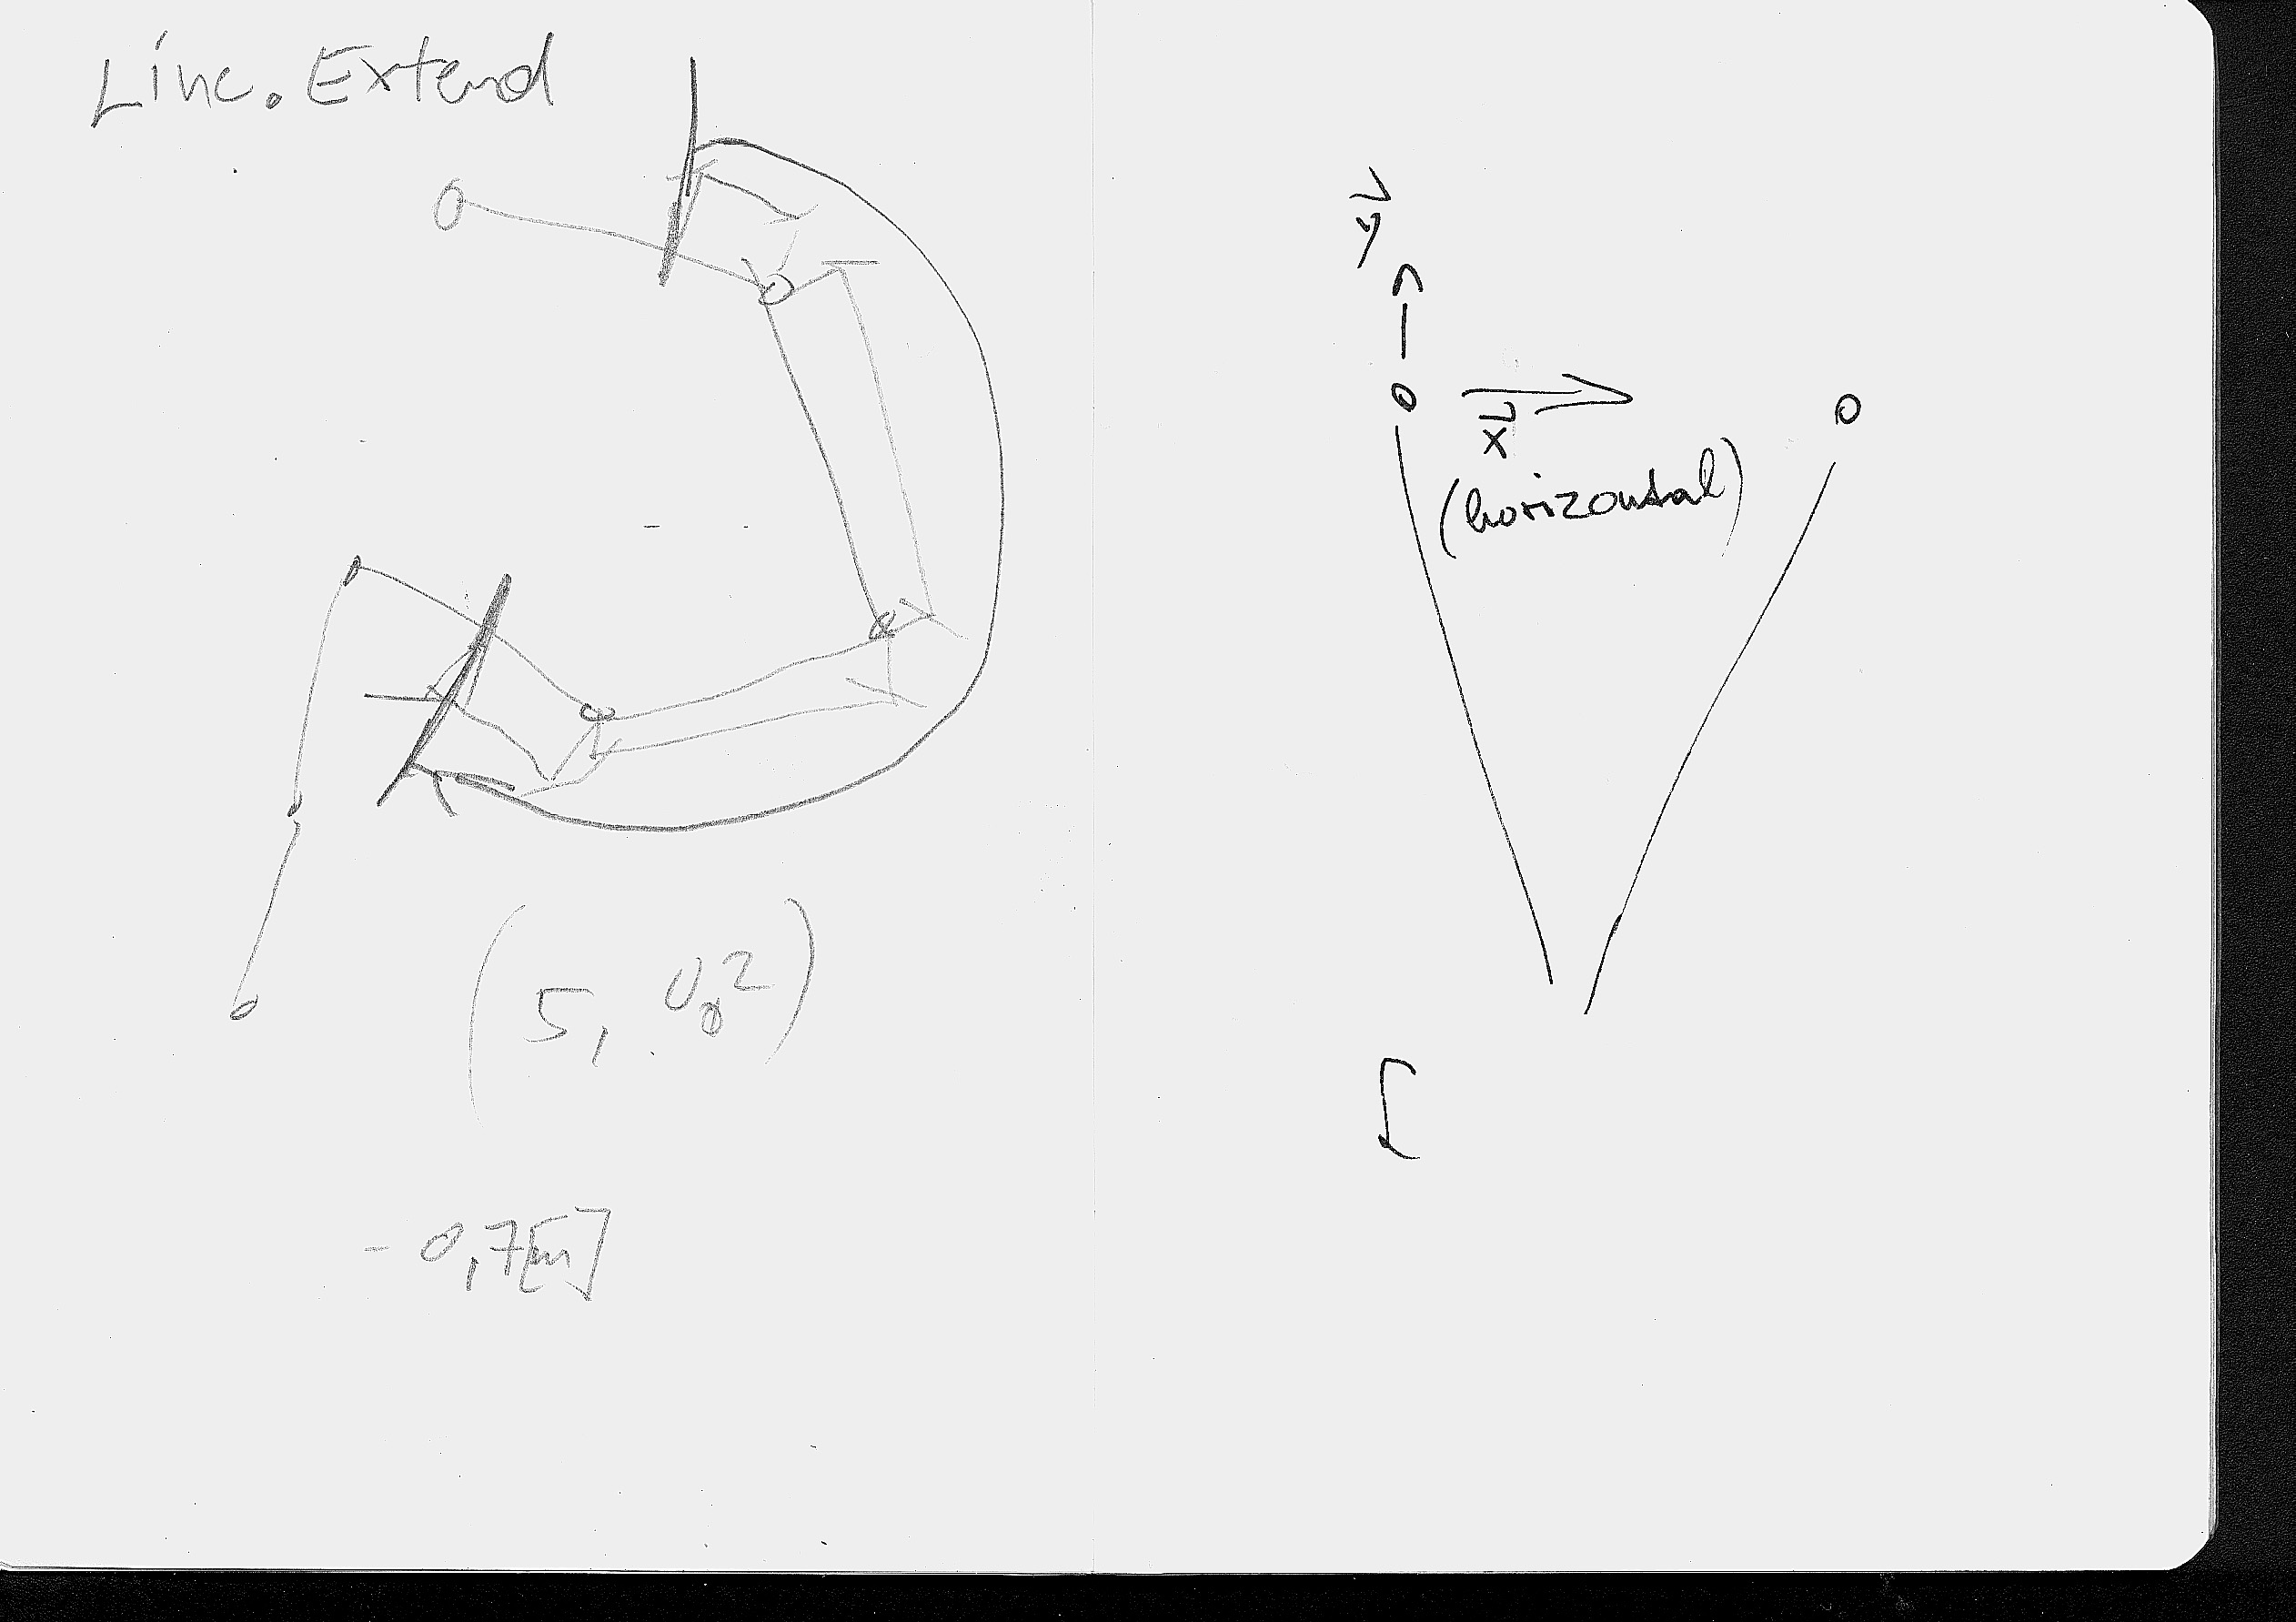 Linc. Extend
(5, 0.²)
- 0,7[m]
y⃗
x⃗
(horizontal)
[